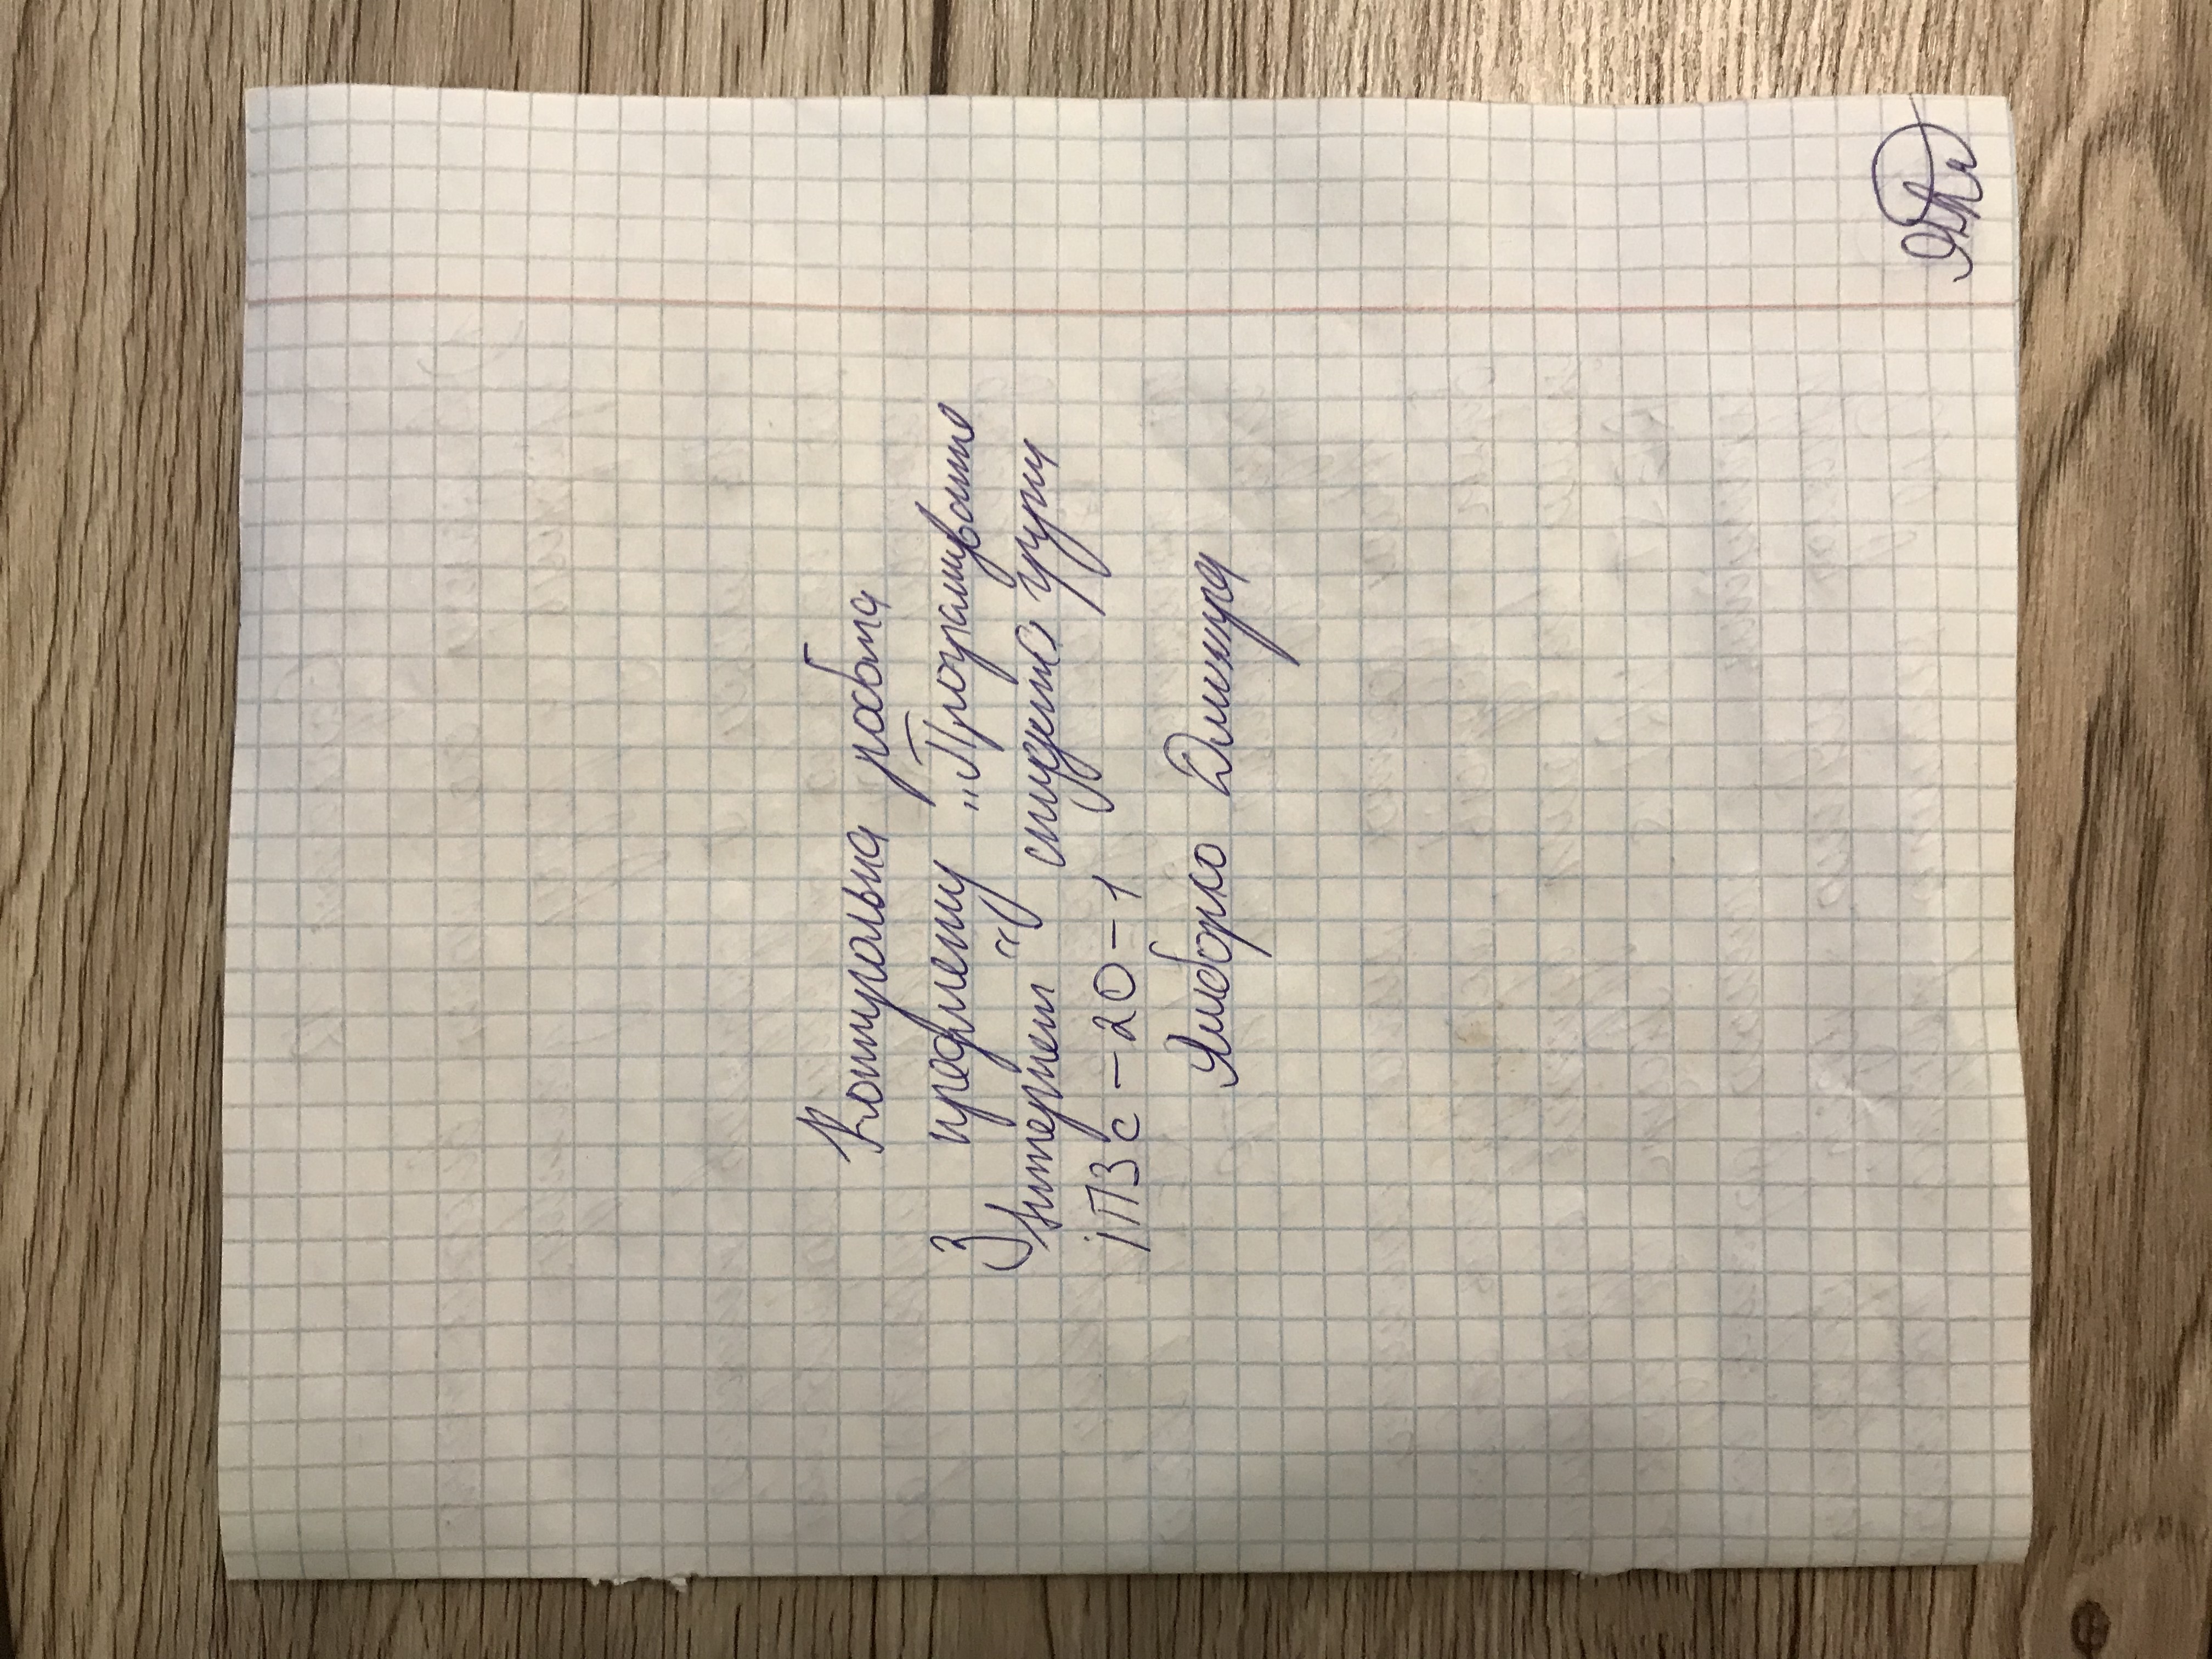 Контрольна робота
з предмету „Програмування
Інтернет“ студента групи
ІПЗс-20-1
Дмитра